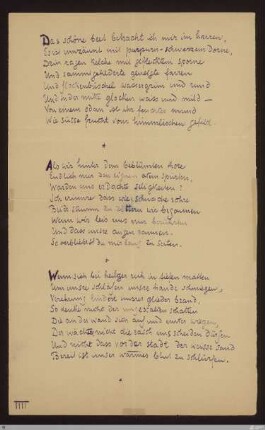 Das schöne beet betracht ich mir im harren,
Es ist umzäunt mit purpurn-schwarzem dorne,
Drin ragen kelche mit geflecktem sporne
Und sammtgefiederte geneigte farren
Und flockenbüschel wassergrün und rund
Und in der mitte glocken weiss und mild —
Von einem odem ist ihr feuchter mund
Wie süsse frucht vom himmlischen gefild
*
Als wir hinter dem beblümten tore
Endlich nur das eigne atem spürten,
Warden uns erdachte seligkeiten?
Ich erinnere dass wie schwache rohre
Beide stumm zu wir begannen
Wenn wir leis uns nur berührten
Und dass unsre augen rannen —
So verbliebst du mir lang zu seiten.
*
Wenn sich bei heilger ruh in tiefen matten
Um unsre schläfen unsre hände schmiegen,
Verehrung lindert unsrer glieder brand,
So denke nicht der ungestalten schatten
Die an der wand sich auf und unter wiegen,
Der wächter nicht die rasch uns scheiden dürfen
Und nicht dass vor der stadt der weisse sand
Bereit ist unser warmes blut zu schlürfen.
*
IIII